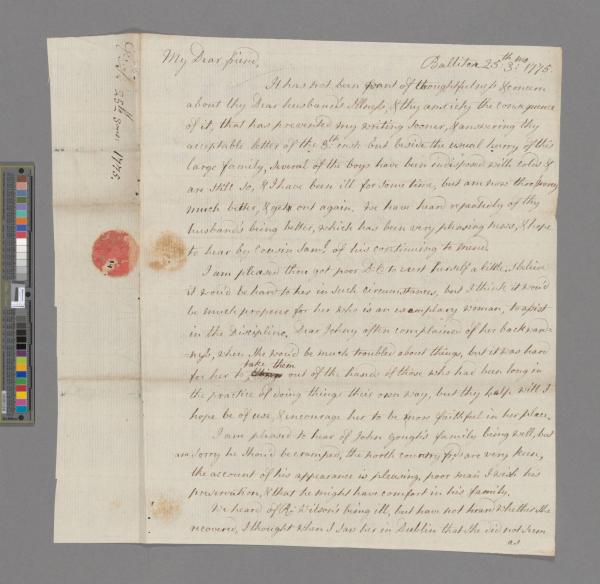 My Dear friend,
Ballitore 25th 3mo. 1775.
It has not been want of thoughtfulness & concern
about thy Dear husband's Illness, & thy anxiety the consequence
of it, that has prevented my writing sooner, & answering thy
acceptable letter of the inst. but beside the usual hurry of this
large family, several of the boys have been indisposed with colds &
are still so, & I have been ill for some time, but am now thro' mercy
much better, & got out again. We have heard repeatedly of thy
husband's being better, which has been very pleasing news, & hope
to hear by Cousin Saml. of his continuing to mend
I am pleased thou got poor D:C to exert herself a little. I believe
it wou'd be hard to her in such circumstances, but I think it wou'd
be much properer for her who is an exemplary woman, to assist
in the Discipline. Dear Johny often complained of her backward-
ness, when she wou'd be much troubled about things, but it was hard
take them
for her to out of the hands of those who had been long in
the practice of doing things their own way, but thy help will I
hope be of use, & encourage her to be more faithful in her place.
I am pleased to hear of John Gough's family being well, but
am sorry he should be cramped, the north country frds are very keen,
the account of his appearance is pleasing, poor man I wish his
preservation, & that he might have comfort in his family.
We heard of R: Wilson's being ill, but have not heard whether she
recovered, I thought when I saw her in Dublin that she did not seem
as
25th 3mo 1775